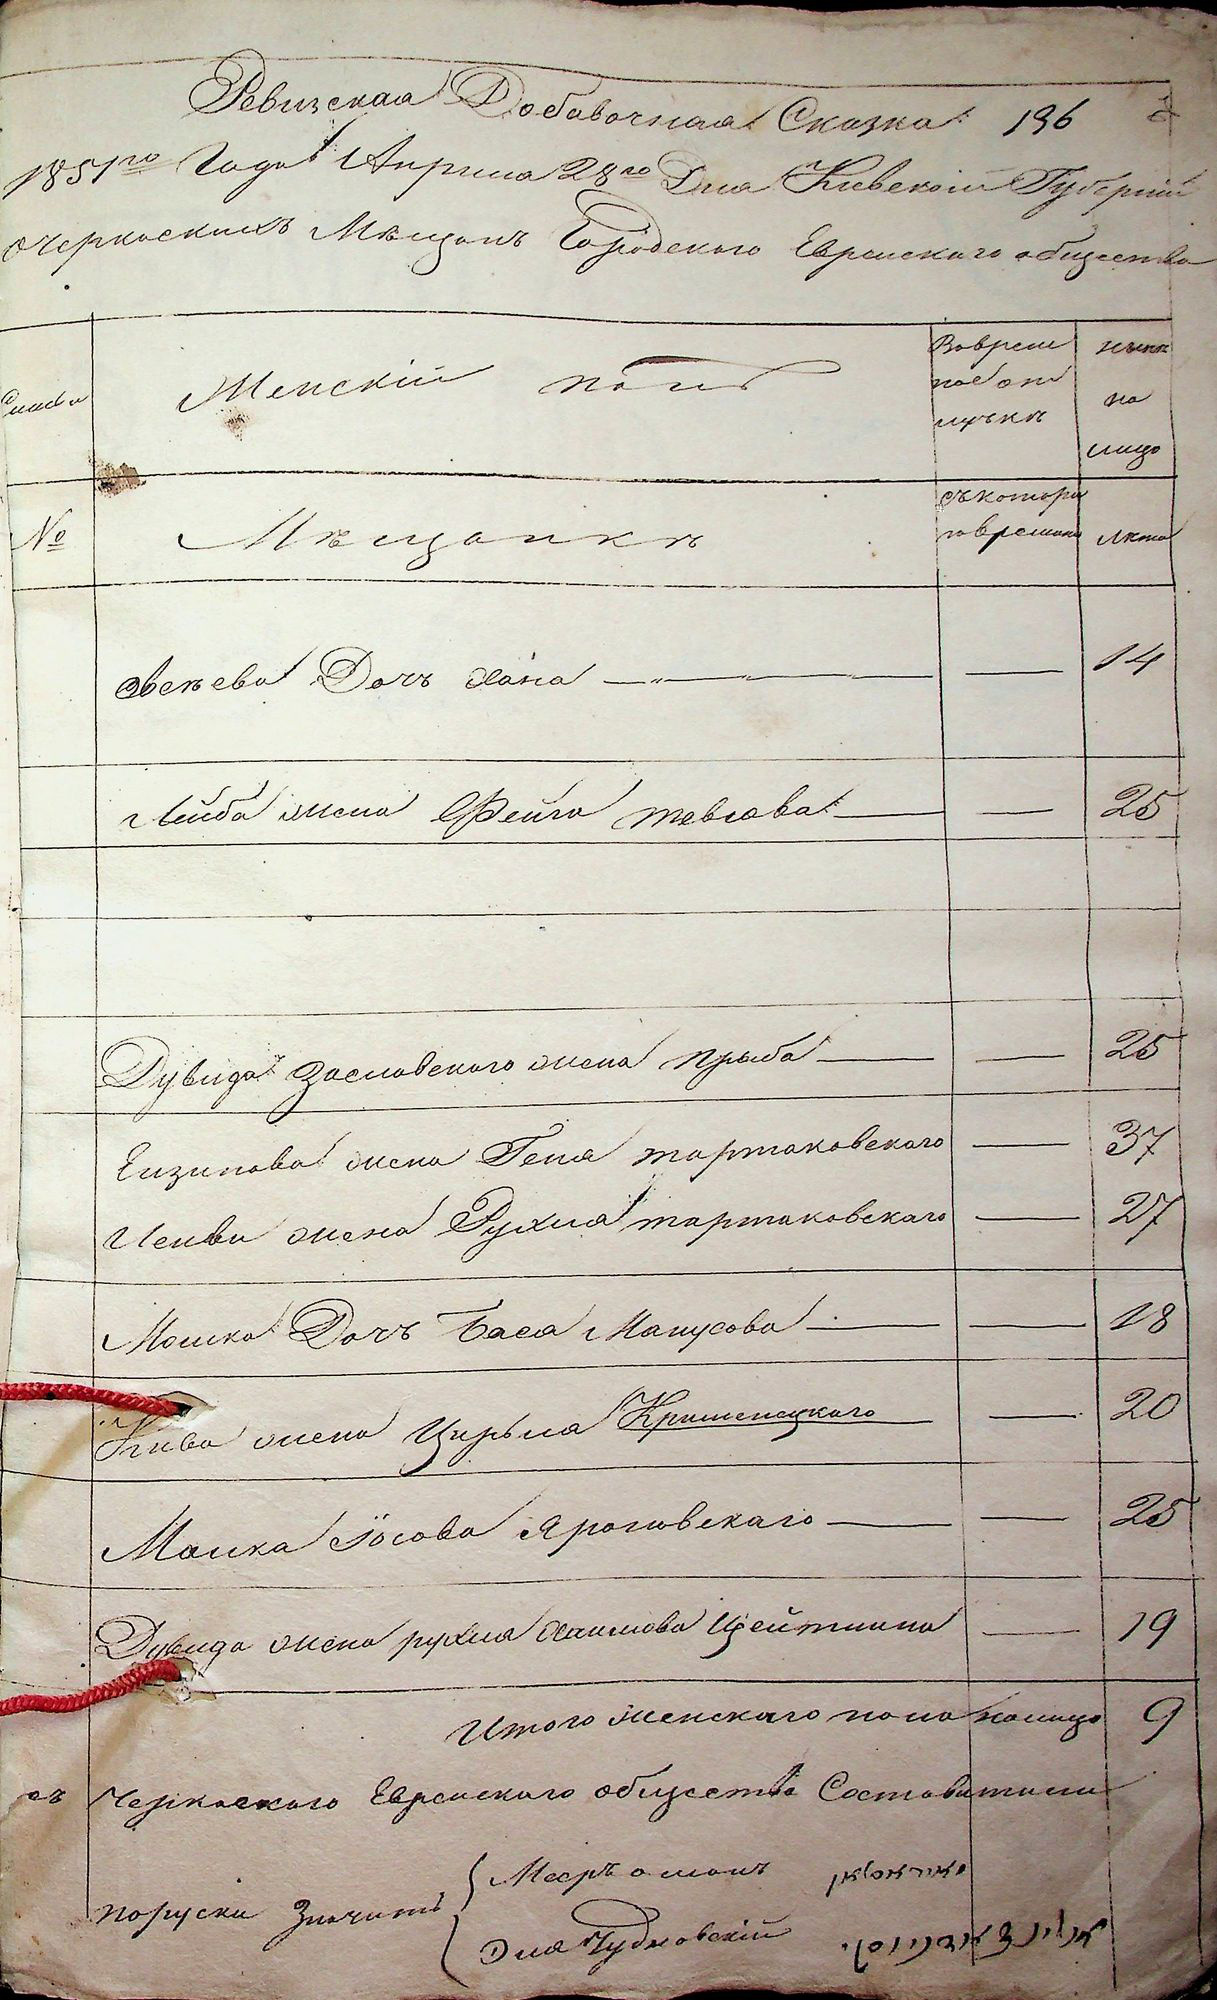 Ревизская Добавочная Сказка 196
1851го Года Априла 28го Дня Киевской Губернии
Черкаскихъ Мѣщанъ Городского Еврейского общества
Женскій полъ
Вовреме
ной отл
лучькѣ
ныне
на
лицо
Семьи
№
Мѣщанкѣ
съ котора
го времени
лета
Дочъ Хана — — 14
Лейба жена Фейга тевиова — — 25
Дувида Заславского жена прыба — — 25
Ейзикова жена Геня тартаковского — 37
жена Рухля тартаковскаго — 27
Мошка Дочъ Бася Манусова — — 18
Акива жена Цирьля Кришенецкаго — 20
Малка Іосова Ярошовскаго — — 25
Дувида жена рухля Хаимова Цейтлина — 19
Итого женскаго пола налицо 9
Черкаского Еврейского общества Составители
поруски Значитъ
Чудновскій